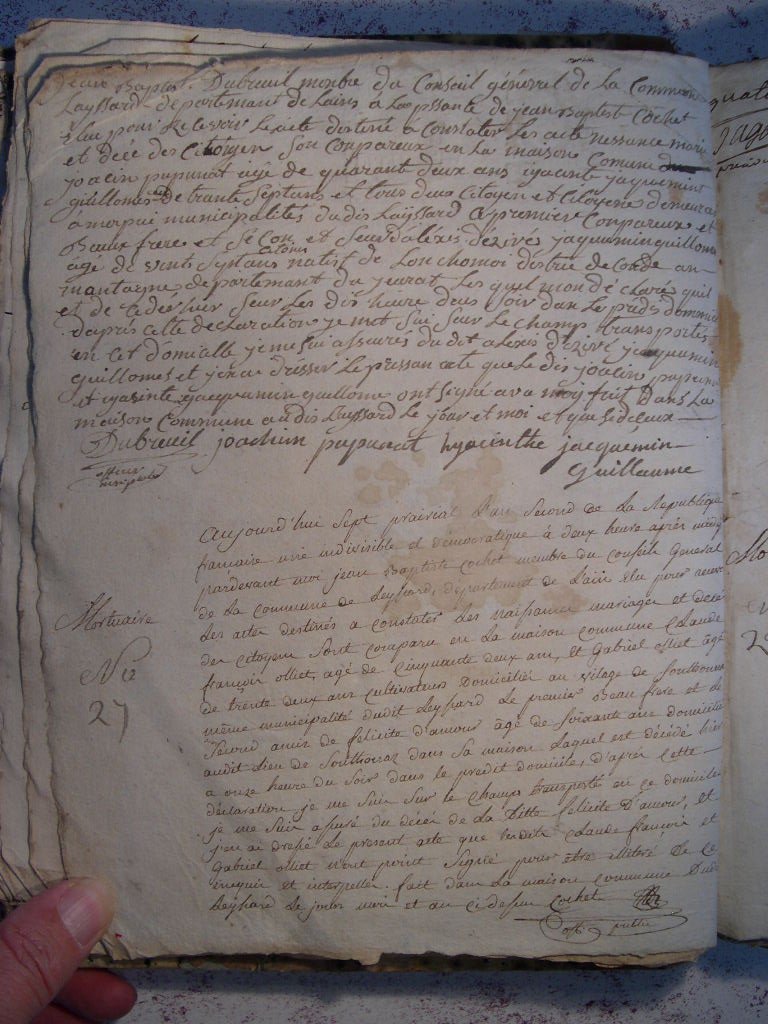 jean Baptist Dubreuil monbre du Conseil général de la Commune
Layssard departemant de Lains a la pssante de jean Baptist Cochet
Elue pour Recevoir Le acte destiné a Constater Les acte nessance marie
et décé des Citoyen Son Conpareux en La maison Comune
joacin papunat agé de quarant deux ans iyacente jaquemint
guillomes de trante Septans et tous deux Citoyen et Citoyene demeurant
a municipalités du dis Laissard Le premier Conpareux et
Beaux frere et Se Con et Seur d'aléxis dézivés jaquemin guillome
agé de vint Syt ans natif de Lonchomoi distric de Conde an
montagne departemant du jeurat Les quel mon dé claré quil
et de cedé hier Seur Les dis heure deus Soir dan Le prédis domicile
daprés Cette declaration je mot Sui Seur Le champ transportés
en Cet domicille je me Sui assures du det alexis dézivé jaquemin
guillomes et jen ai dresser Le pressan acte que Le dis joacin papunat
et iyasinte jaquamin guillome ont Signé ava moy fait Dans La
maison Commune au dis Leyssard Le jour et moi et que Si deseux
Dubreuil joachim papunat hyacinthe jacquemin
officier municipale
Guillaume
Aujourd'hui Sept prairial L'an Second de La République
francaise une indivisible et Démocratique à deux heure après midy
pardevant moi jean Baptiste Cochet membre du Conseil General
de La Commune de Leyssard, département de L'ain Elu pour recevoir
Les actes destinés a Constater Les naissance mariages et décé
des Citoyens Sont Comparu en La maison Commune Claude
françois olliet, agé de Cinquante deux ans, Et Gabriel olliet agé
de trente deux ans cultivateurs Domicilies au vilage de
même municipalité dudit Leyssard Le premier Beau frere et Le
Second amis de félicité d'amour âgé de Soixante ans domicilié
audit Lieu de dans Sa maison Laquel est décédé hier
a onze heure du Soir dans le prédit domicile, d'après Cette
déclaration je me Suis Sur le champs transporté en ce domicile
je me Suis assuré du décé de La ditte félicité D'amour, et
j'en ai dressé Le present acte que Ledits Claude françois et
Gabriel olliet n'ont point Signé pour être illiteré De Ce
enquis et interpeller. fait dans La maison commune Dudit
Leyssard Le jour moi et an Ci desus Cochet
off. public
Mortuaire
No
27